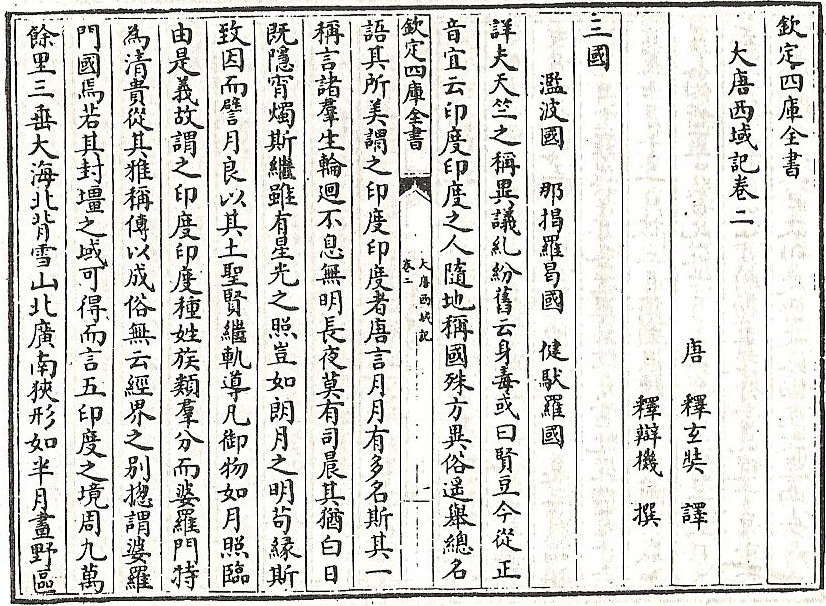 欽定四庫全書
大唐西域記卷二
唐 釋玄奘 譯
釋辯機 撰
三國
濫波國 那揭羅曷國 健馱羅國
詳夫天竺之稱異議糺紛舊云身毒或曰賢豆今從正
音宜云印度印度之人隨地稱國殊方異俗遥舉總名
欽定四庫全書
大唐西域記
卷二
一
語其所美謂之印度印度者唐言月月有多名斯其一
稱言諸羣生輪廻不息無明長夜莫有司晨其猶白日
既隱宵燭斯繼雖有星光之照豈如朗月之明苟緣斯
致因而譬月良以其土聖賢繼軌導凡御物如月照臨
由是義故謂之印度印度種姓族類羣分而婆羅門特
為清貴從其雅稱傳以成俗無云經界之别揔謂婆羅
門國焉若其封壃之域可得而言五印度之境周九萬
餘里三垂大海北背雪山北廣南狹形如半月畫野區